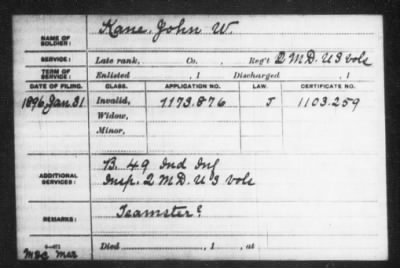 NAME OF SOLDIER: Kane, John W.
SERVICE: Late rank, Co. Reg't 2 M D. U S Vols
TERM OF SERVICE: Enlisted , 1 Discharged , 1
DATE OF FILING. CLASS. APPLICATION NO. LAW. CERTIFICATE NO.
1896 Jan. 31 Invalid, 1173.876 J 1103.259
Widow,
Minor,
ADDITIONAL SERVICES: B. 49 Ind Inf
2 M D. U S Vols
REMARKS: Teamster
Died , 1 , at